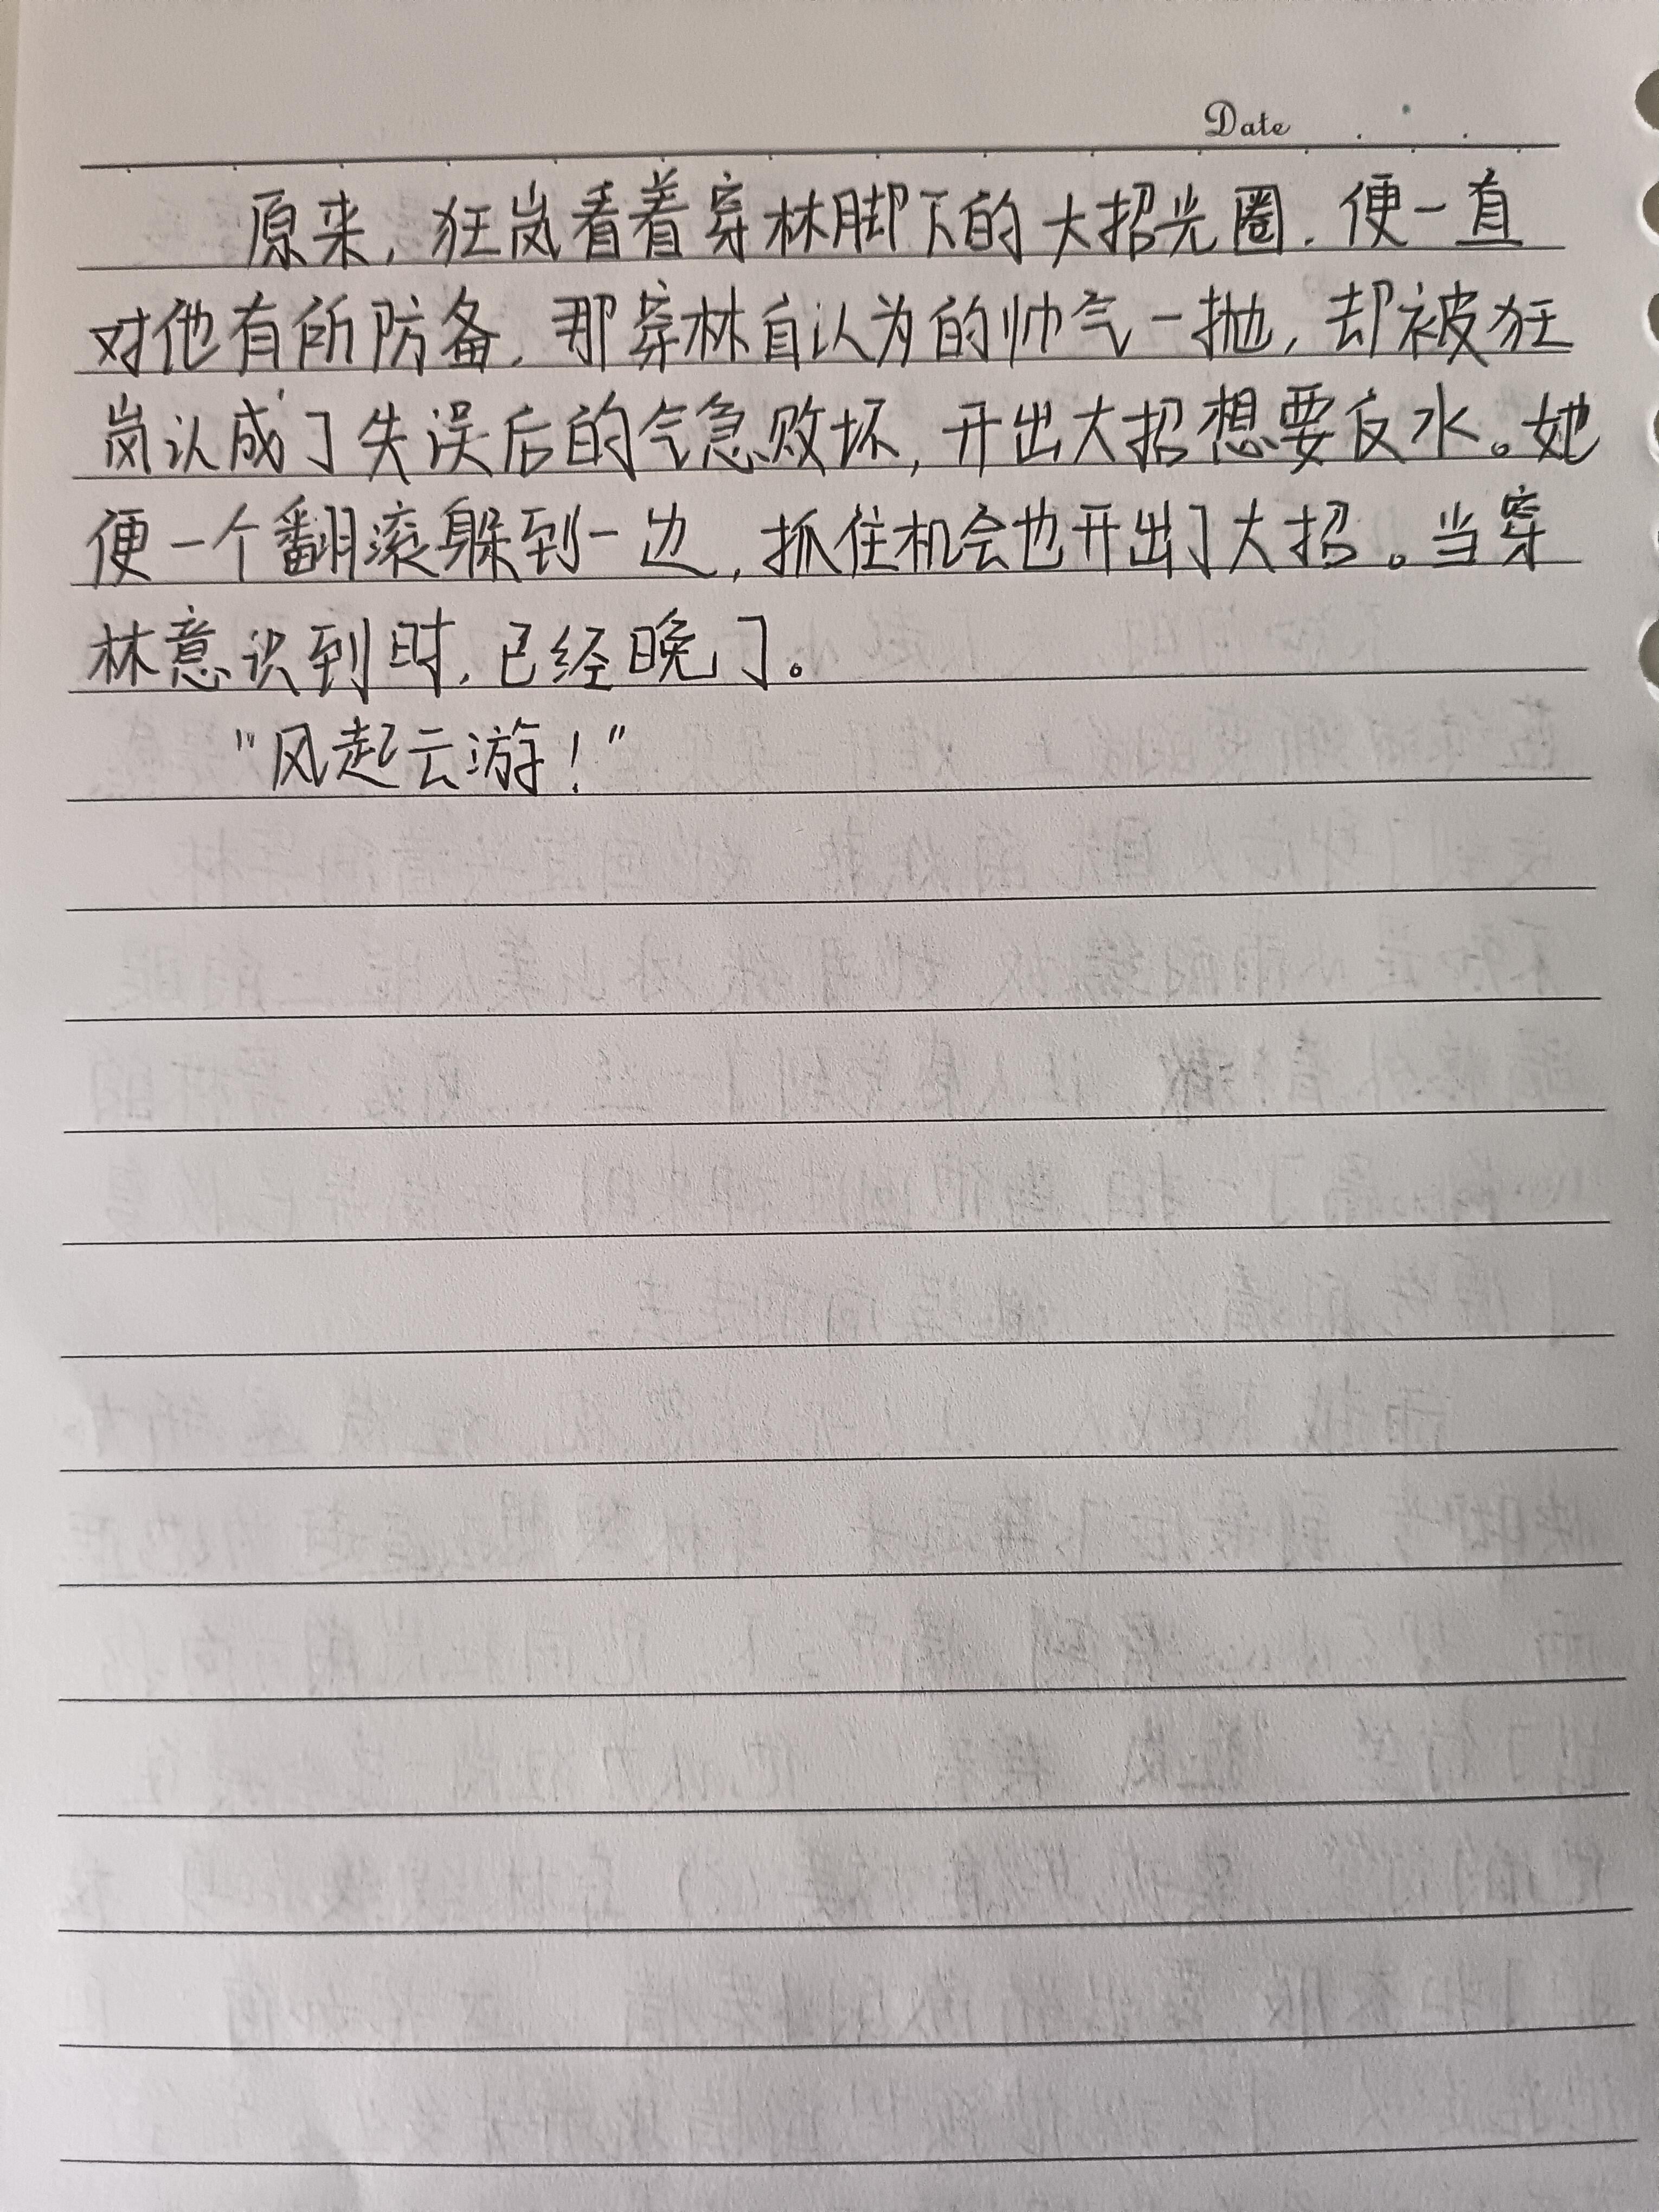 Date
原来,狂岚看着穿林脚下的大招光圈,便一直
对他有所防备,那穿林自认为的帅气一抛,却被狂
岚认成了失误后的气急败坏,开出大招想要反水。她
便一个翻滚躲到一边,抓住机会也开出了大招。当穿
林意识到时,已经晚了。
"风起云游!"